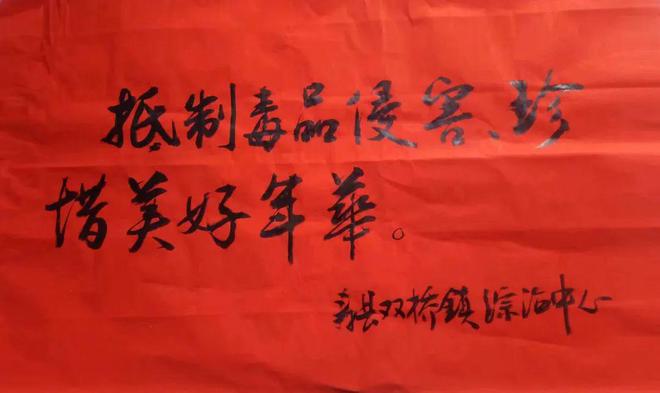 抵制毒品侵害、珍
惜美好年華。
彭县双桥鎮综治中心